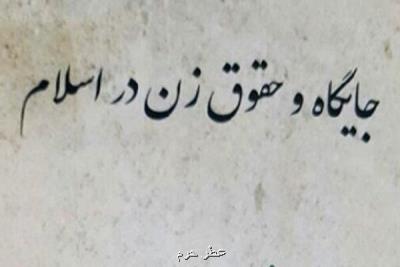 جایگاه و حقوق زن در اسلام
عطر حرم